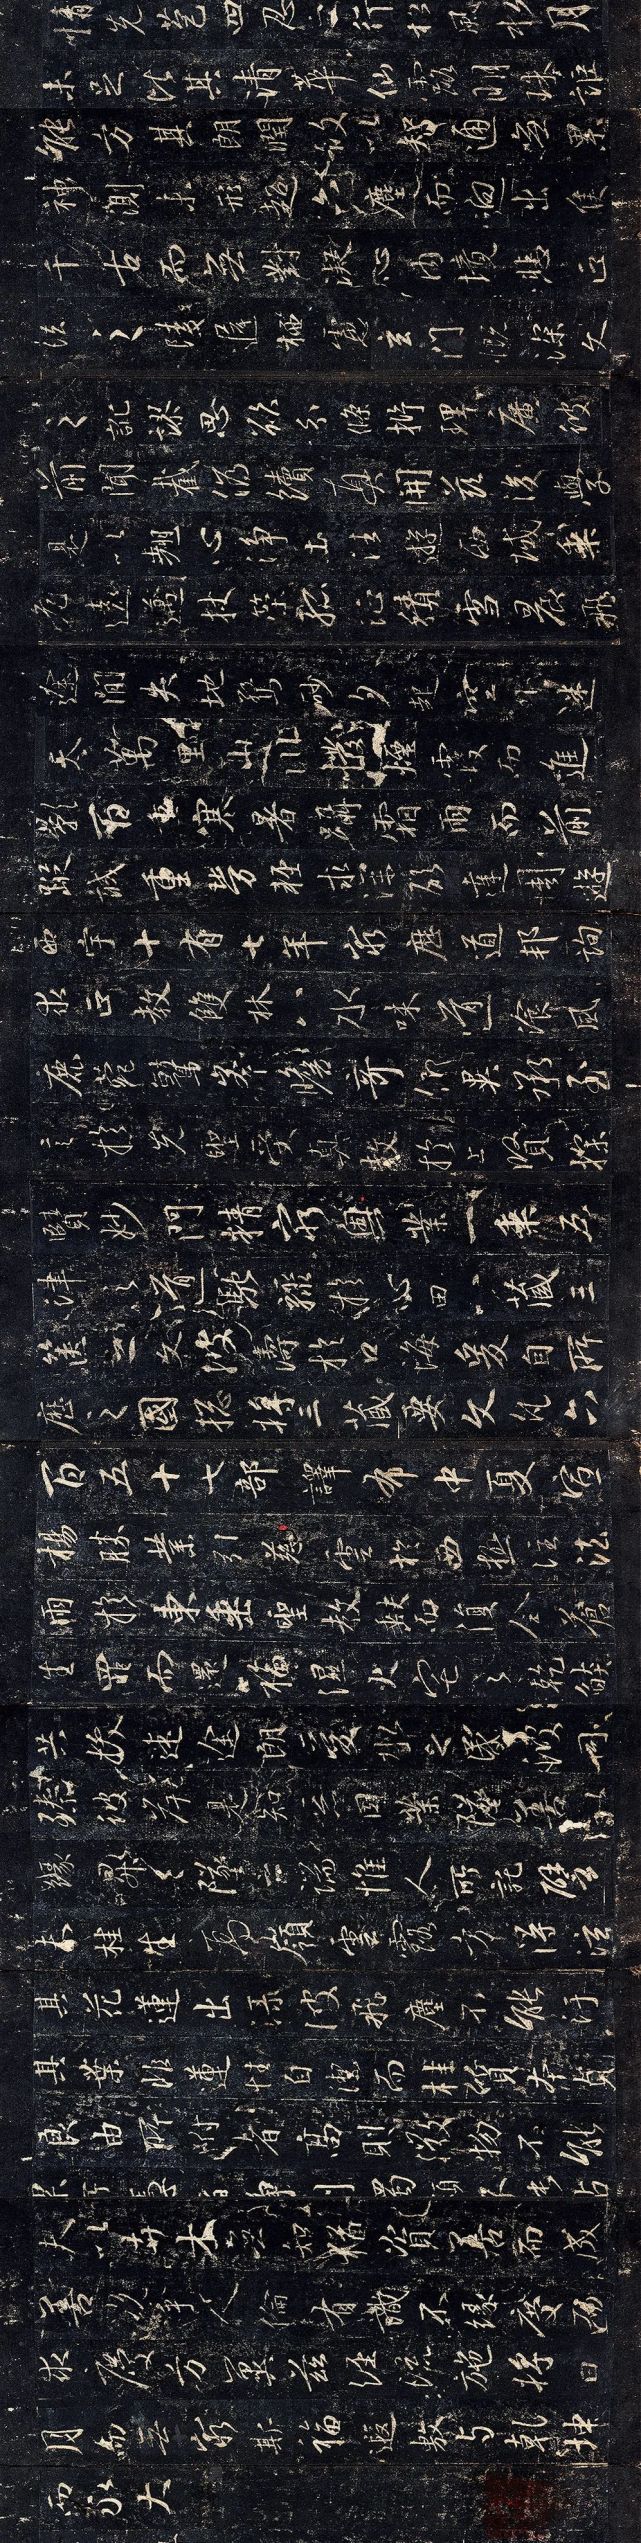 情先苞四忍之行松風水月
未足比其清華仙露明珠詎
能方其朗潤故以智通無累
神測未形超六塵而迥出隻
千古而無對凝心內境悲正
法之陵遲栖慮玄門慨深文
之訛謬思欲分條析理廣彼
前聞截偽續真開茲後學
是以翹心淨土法遊西域乘
危遠邁杖策孤征積雪晨飛
途閒失地驚砂夕起空外迷
天萬里山川撥煙霞而進
影百重寒暑躡霜雨而前
蹤誠重勞輕求深願達周遊
西宇十有七年窮歷道邦詢
求正教雙林八水味道飡風
鹿菀鷲峯瞻奇仰異承至
言於先聖受真教於上賢探
賾妙門精窮奧業一乘五
律之道馳驟於心田八藏三
篋之文波濤於口海爰自所
歷之國揔將三藏要文凡六
百五十七部譯布中夏宣
揚勝業引慈雲於西極注法
雨於東垂聖教缺而復全蒼
生罪而還福濕火宅之乾焰
共拔迷途朗愛水之昏波同
臻彼岸是知惡因業墜善以
緣昇昇墜之端惟人所託譬
夫桂生高嶺雲露方得泫
其花蓮出淥波飛塵不能汙
其葉非蓮性自潔而桂質本貞
良由所附者高則微物不能
累所憑者淨則濁類不能沾
夫以卉木無知猶資善而成
善況乎人倫有識不緣慶而
求慶方冀茲經流施將日
月而無窮斯福遐敷與乾坤
而永大